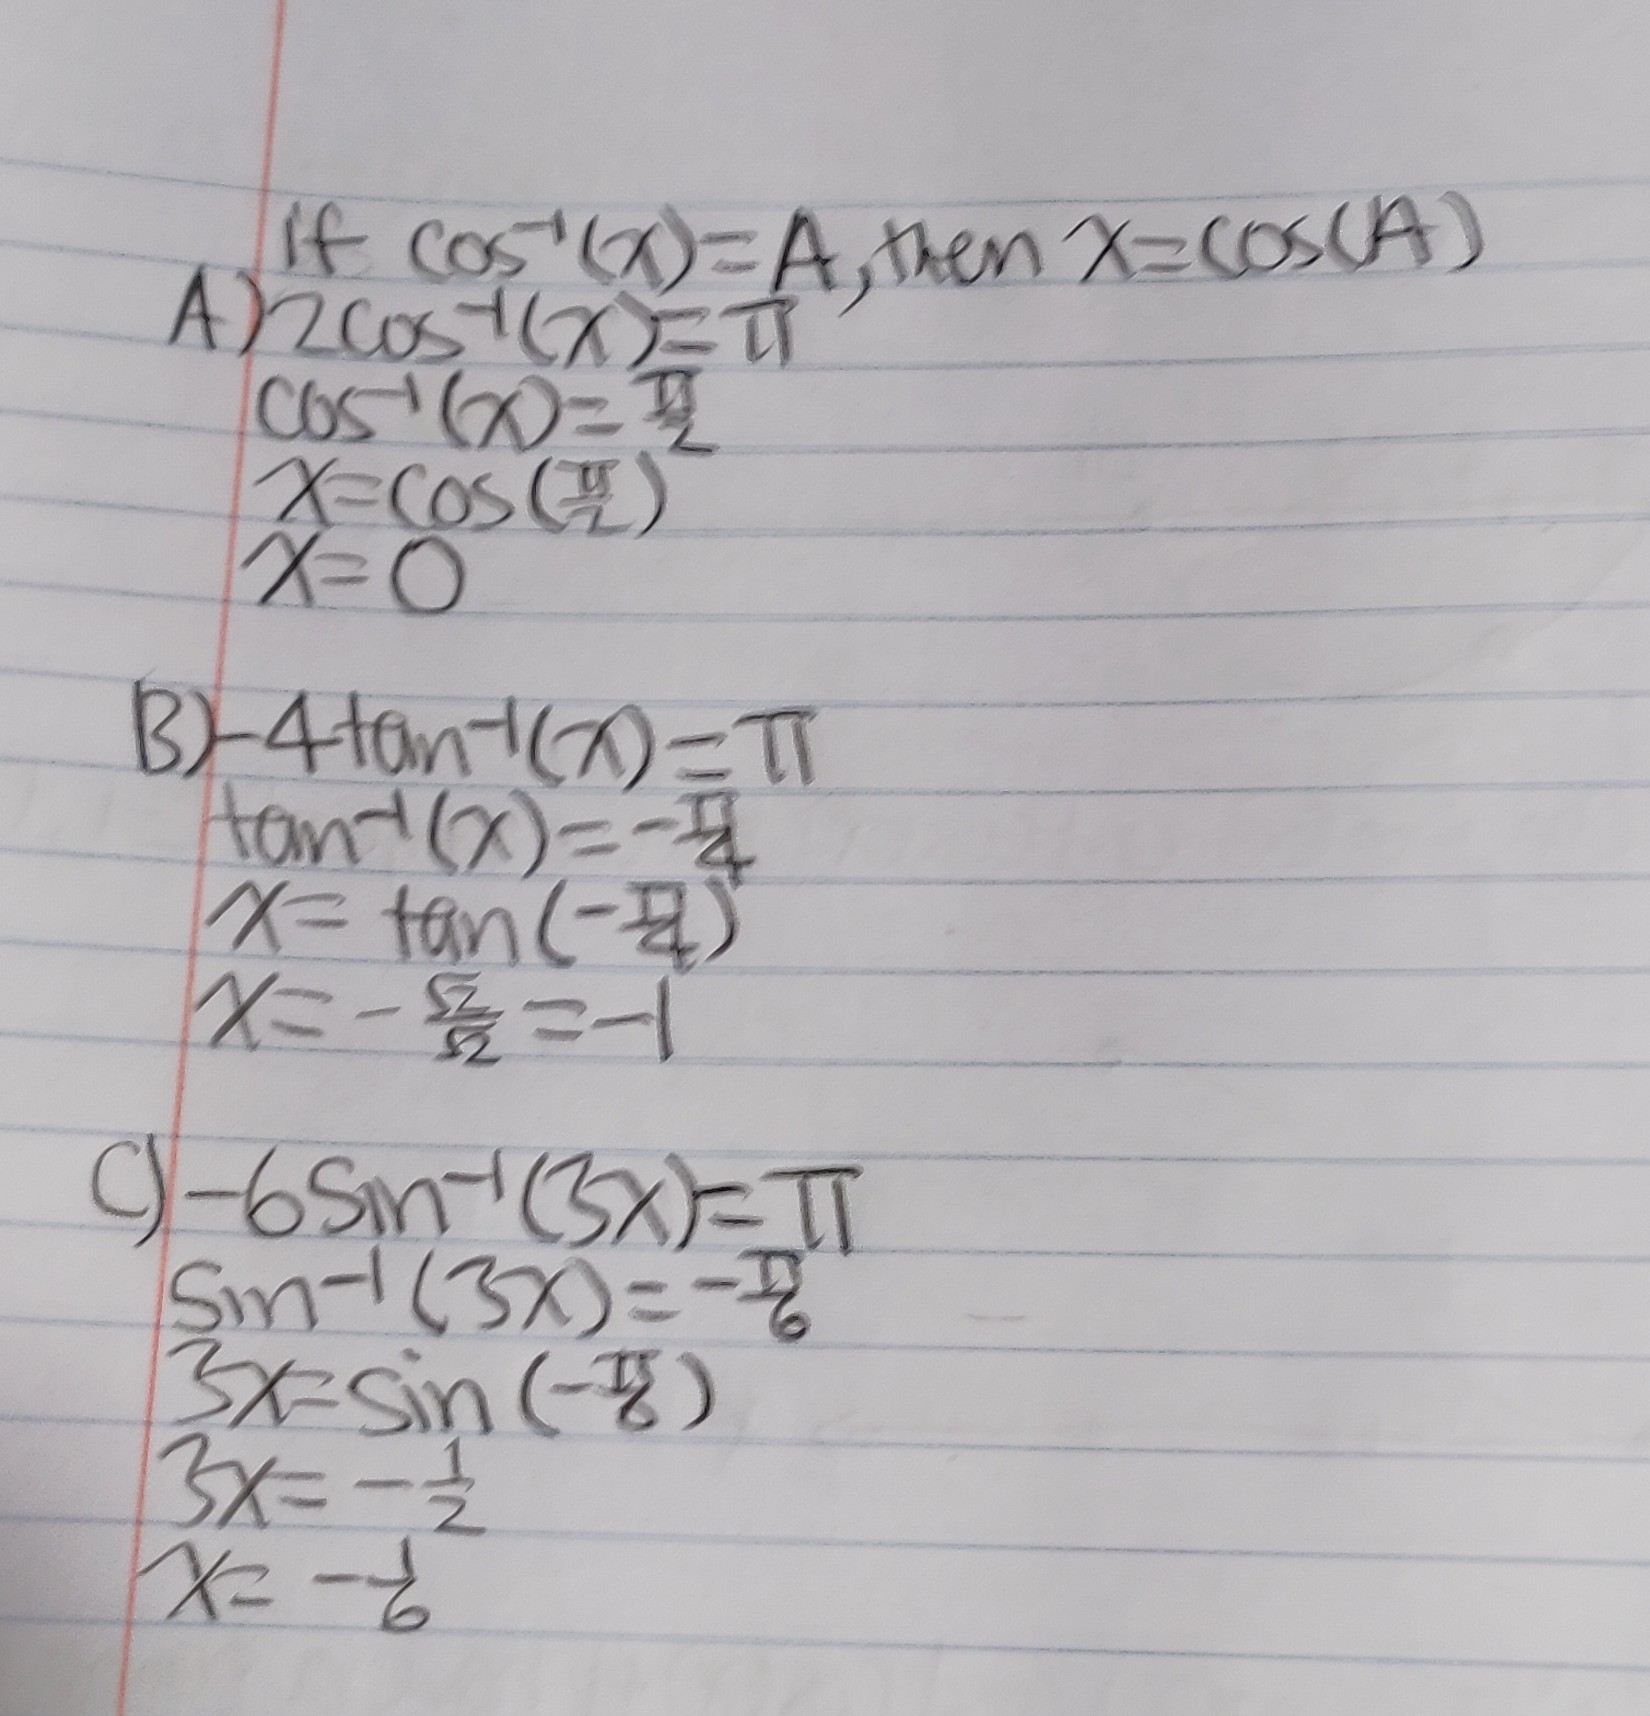 If cos⁻¹(x)=A, then x=cos(A)
A) 2cos⁻¹(x)=π
cos⁻¹(x)=π/2
x=cos(π/2)
x=0
B) -4tan⁻¹(x)=π
tan⁻¹(x)=-π/4
x=tan(-π/4)
x=-√2/√2=-1
C) -6sin⁻¹(3x)=π
sin⁻¹(3x)=-π/6
3x=sin(-π/6)
3x=-1/2
x=-1/6